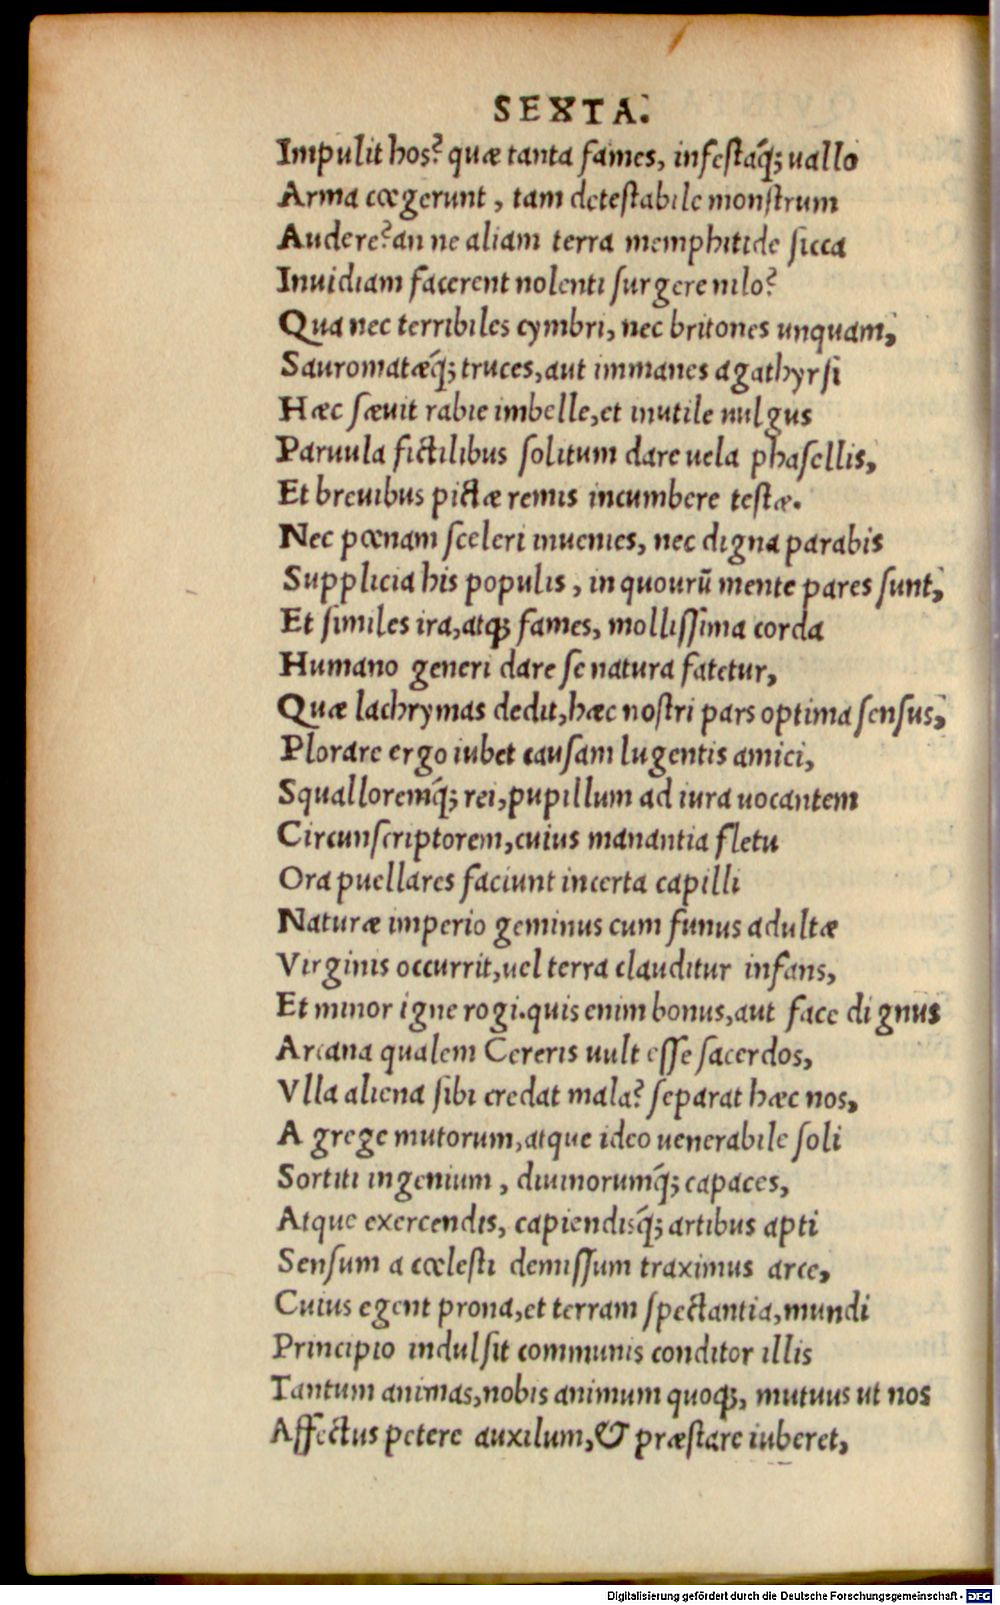 SEXTA.
Impulit hos? quæ tanta fames, infestaq́; uallo
Arma cœgerunt, tam detestabile monstrum
Audere? an ne aliam terra memphitide sicca
Inuidiam facerent nolenti surgere nilo?
Qua nec terribiles cymbri, nec britones unquam,
Sauromatæq́; truces, aut immanes agathyrsi
Hæc sæuit rabie imbelle, et inutile uulgus
Paruula fictilibus solitum dare uela phasellis,
Et breuibus pictæ remis incumbere testæ.
Nec pœnam sceleri inuenies, nec digna parabis
Supplicia his populis, in quourũ mente pares sunt,
Et similes ira, atq; fames, mollissima corda
Humano generi dare se natura fatetur,
Quæ lachrymas dedit, hæc nostri pars optima sensus,
Plorare ergo iubet causam lugentis amici,
Squalloremq́; rei, pupillum ad iura uocantem
Circunscriptorem, cuius manantia fletu
Ora puellares faciunt incerta capilli
Naturæ imperio geminus cum funus adultæ
Virginis occurrit, uel terra clauditur infans,
Et minor igne rogi. quis enim bonus, aut face dignus
Arcana qualem Cereris uult esse sacerdos,
Vlla aliena sibi credat mala? separat hæc nos,
A grege mutorum, atque ideo uenerabile soli
Sortiti ingenium, diuinorumq́; capaces,
Atque exercendis, capiendisq́; artibus apti
Sensum a cœlesti demissum traximus arce,
Cuius egent prona, et terram spectantia, mundi
Principio indulsit communis conditor illis
Tantum animas, nobis animum quoq;, mutuus ut nos
Affectus petere auxilum, & præstare iuberet,
Digitalisierung gefördert durch die Deutsche Forschungsgemeinschaft - DFG